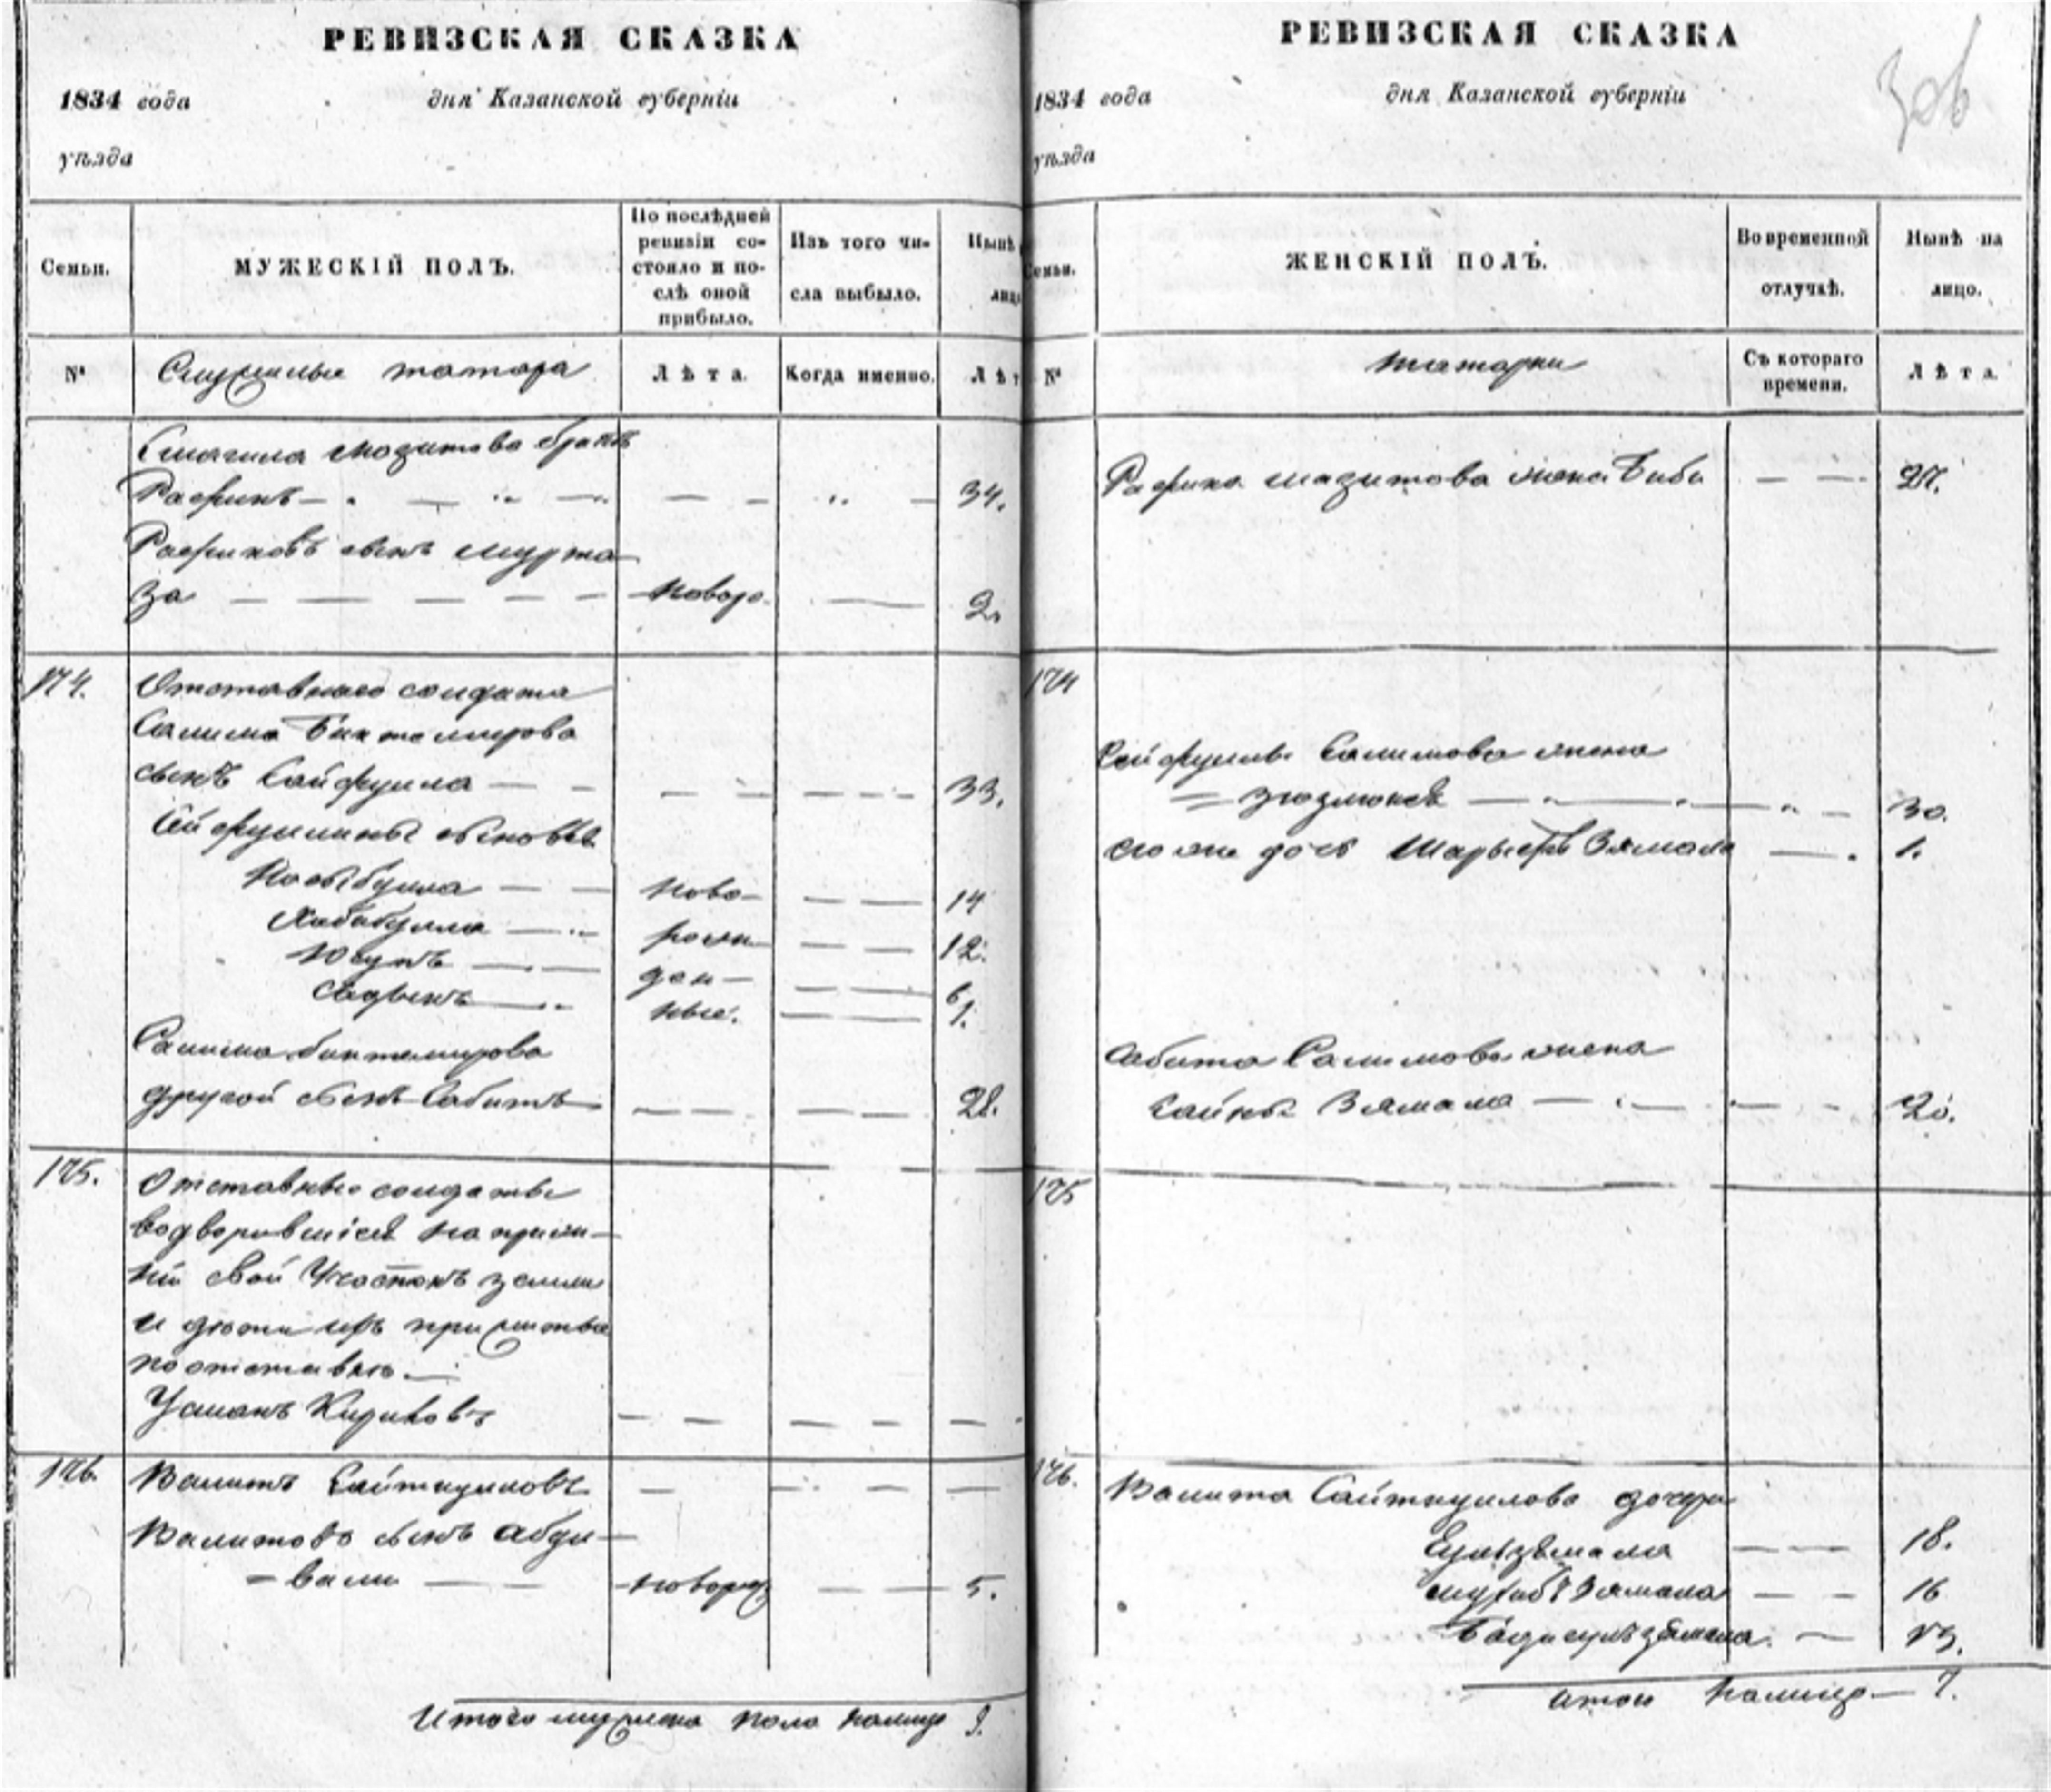 РЕВИЗСКАЯ СКАЗКА
1834 года дня Казанской губерніи
уѣзда
Семьи.
МУЖЕСКІЙ ПОЛЪ.
По послѣдней ревизіи состояло и послѣ оной прибыло.
Изъ того числа выбыло.
Нынѣ
лицо
№
Служилые татара
Лѣта.
Когда именно.
Лѣт
Смагила Мазитова братъ
Рафикъ 34.
Рафиковъ сынъ Мурта
за новоро. 2.
174. Отставнаго солдата
Салима Биктемирова
сынъ Сайфулла 33.
Сайфуллины сыновья
Насыбулла ново- 14
Хабибулла рож 12.
Юсупъ ден- 6
Садыкъ ные. 1.
Салима Биктемирова
другой сынъ Сабитъ 28.
175. Отставные солдаты
водворившіся на преж-
ній свой участокъ земли
и дѣти ихъ прижитые
по отставке.
Усманъ
176. Валитъ Сайткуловъ
Валитовъ сынъ Абду-
=вали новорож 5.
Итого мужска пола налицо 9.
РЕВИЗСКАЯ СКАЗКА
1834 года дня Казанской губерніи
уѣзда
Семьи.
ЖЕНСКІЙ ПОЛЪ.
Во временной отлучкѣ.
Нынѣ на лицо.
№
татарки
Съ котораго времени.
Лѣта
Рафика Мазитова жена Биби 27.
174
Сайфуллы Салимова жена
30.
ево же дочь Зямала 1.
Сабита Салимова жена
Зямала 20.
175
176. Валита Сайткулова дочери
18.
16
13.
Итого налицо 7.